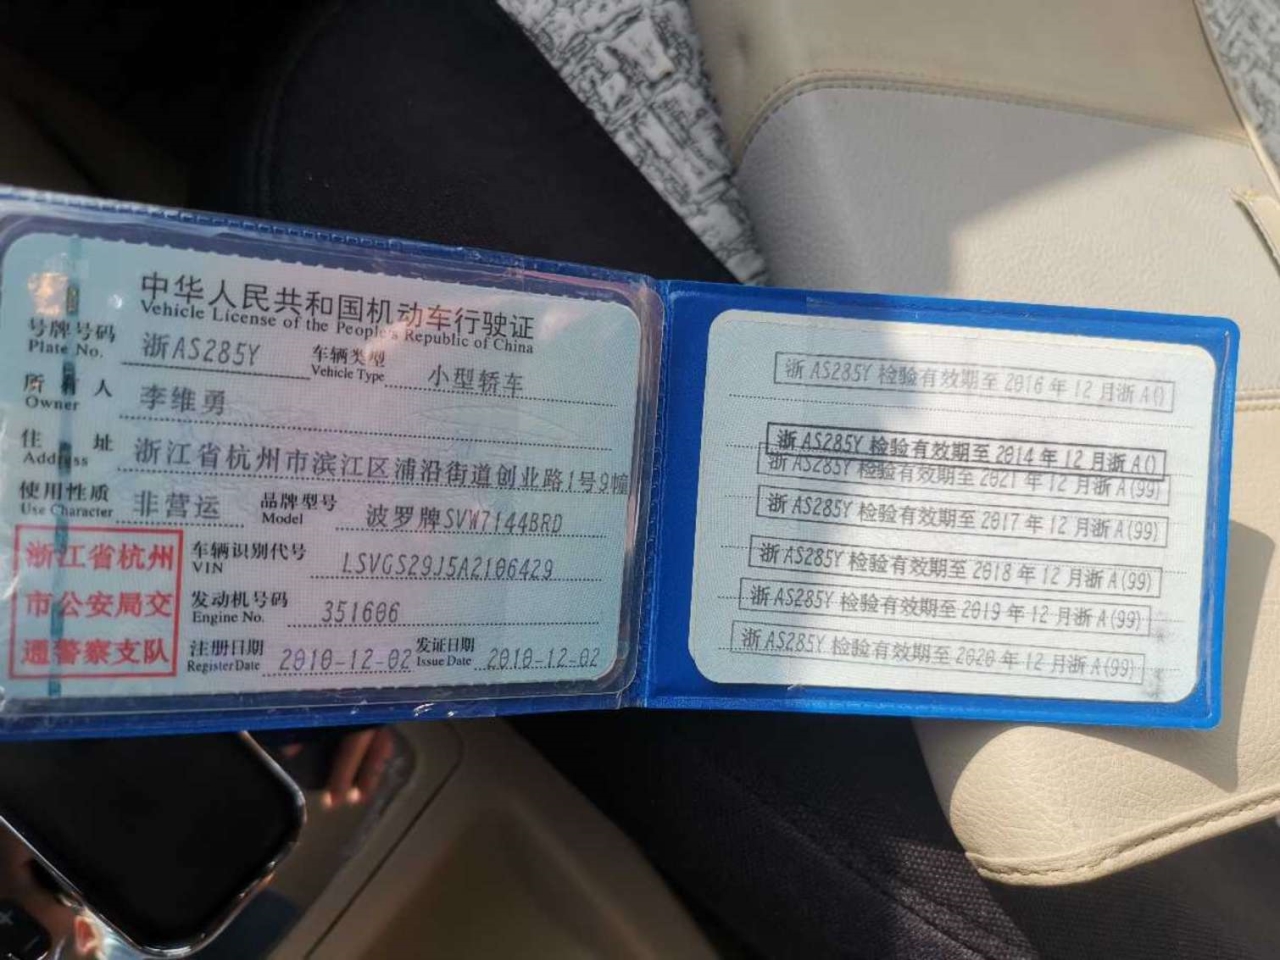 中华人民共和国机动车行驶证
Vehicle License of the People's Republic of China
号牌号码 浙AS285Y 车辆类型 小型轿车
Plate No. Vehicle Type
所有人 李维勇
Owner
住址 浙江省杭州市滨江区浦沿街道创业路1号9幢
Address
使用性质 非营运 品牌型号 波罗牌SVW7144BRD
Use Character Model
浙江省杭州
市公安局交
通警察支队
车辆识别代号 LSVGS29J5A2106429
VIN
发动机号码 351606
Engine No.
注册日期 2010-12-02 发证日期 2010-12-02
Register Date Issue Date
浙AS285Y 检验有效期至 2016 年 12 月浙A()
浙AS285Y 检验有效期至 2014 年 12 月浙A()
浙AS285Y 检验有效期至 2021 年 12 月浙A(99)
浙AS285Y 检验有效期至 2017 年 12 月浙A(99)
浙AS285Y 检验有效期至 2018 年 12 月浙A(99)
浙AS285Y 检验有效期至 2019 年 12 月浙A(99)
浙AS285Y 检验有效期至 2020 年 12 月浙A(99)